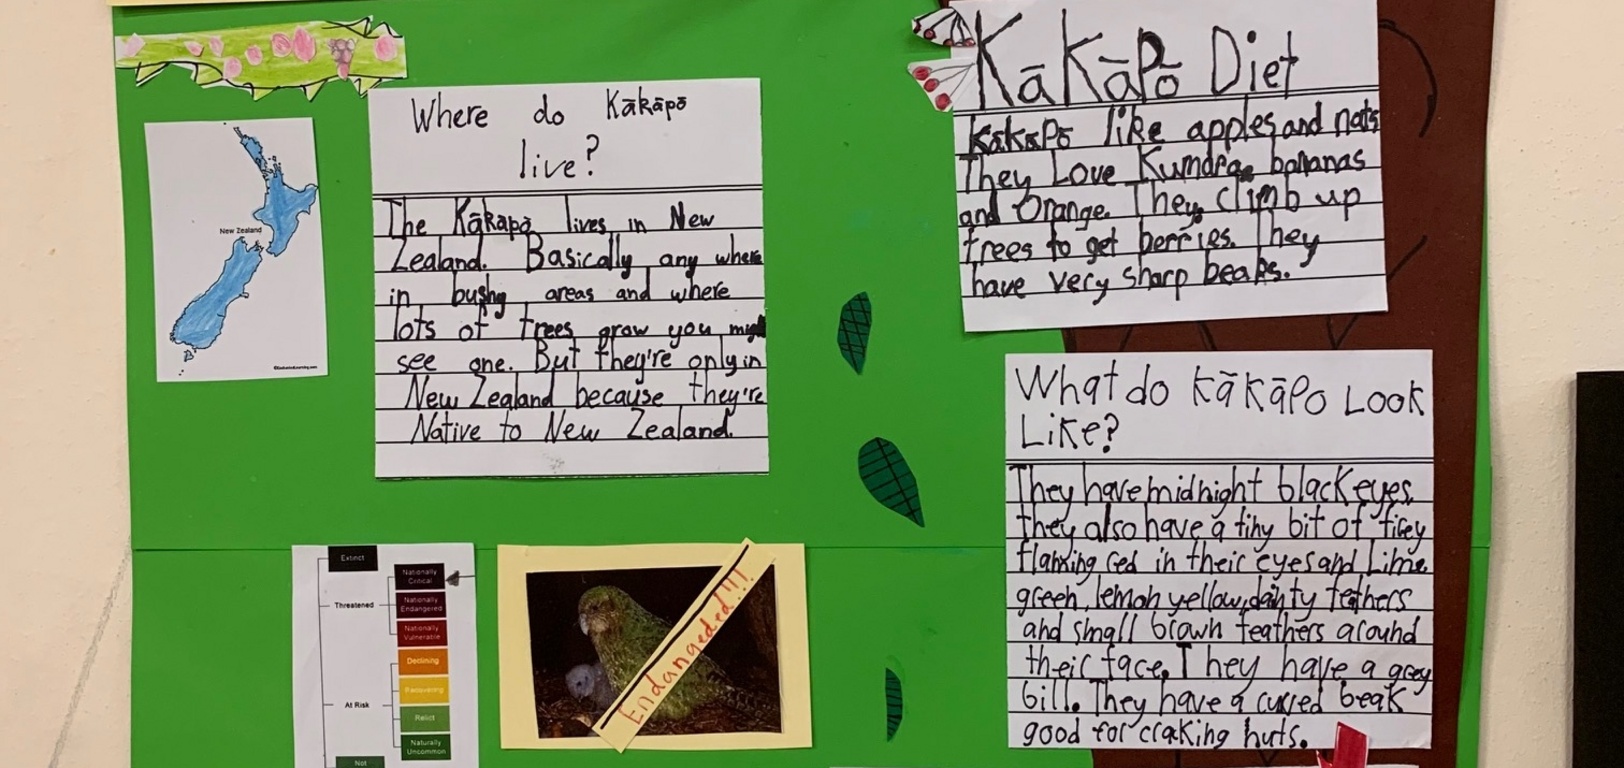 Where do Kākāpō
live?
The Kākāpō lives in New
Zealand. Basically any where
in bushy areas and where
lots of trees grow you might
see one. But they're only in
New Zealand because they're
Native to New Zealand.
New Zealand
KāKāPō Diet
KāKāPō like apples and nuts
They Love Kumara, bananas
and Orange. They climb up
trees to get berries. They
have very sharp beaks.
What do KāKāPo LooK
LiKe?
They have midnight black eyes,
they also have a tiny bit of firey
flaming red in their eyes and Lime
green, lemon yellow, dainty feathers
and small brown feathers around
their face. They have a grey
bill. They have a curved beak
good for craking nuts.
Extinct
Threatened
Nationally
Critical
Nationally
Endangered
Nationally
Vulnerable
At Risk
Declining
Recovering
Relict
Naturally
Uncommon
Not
Endangered!!!